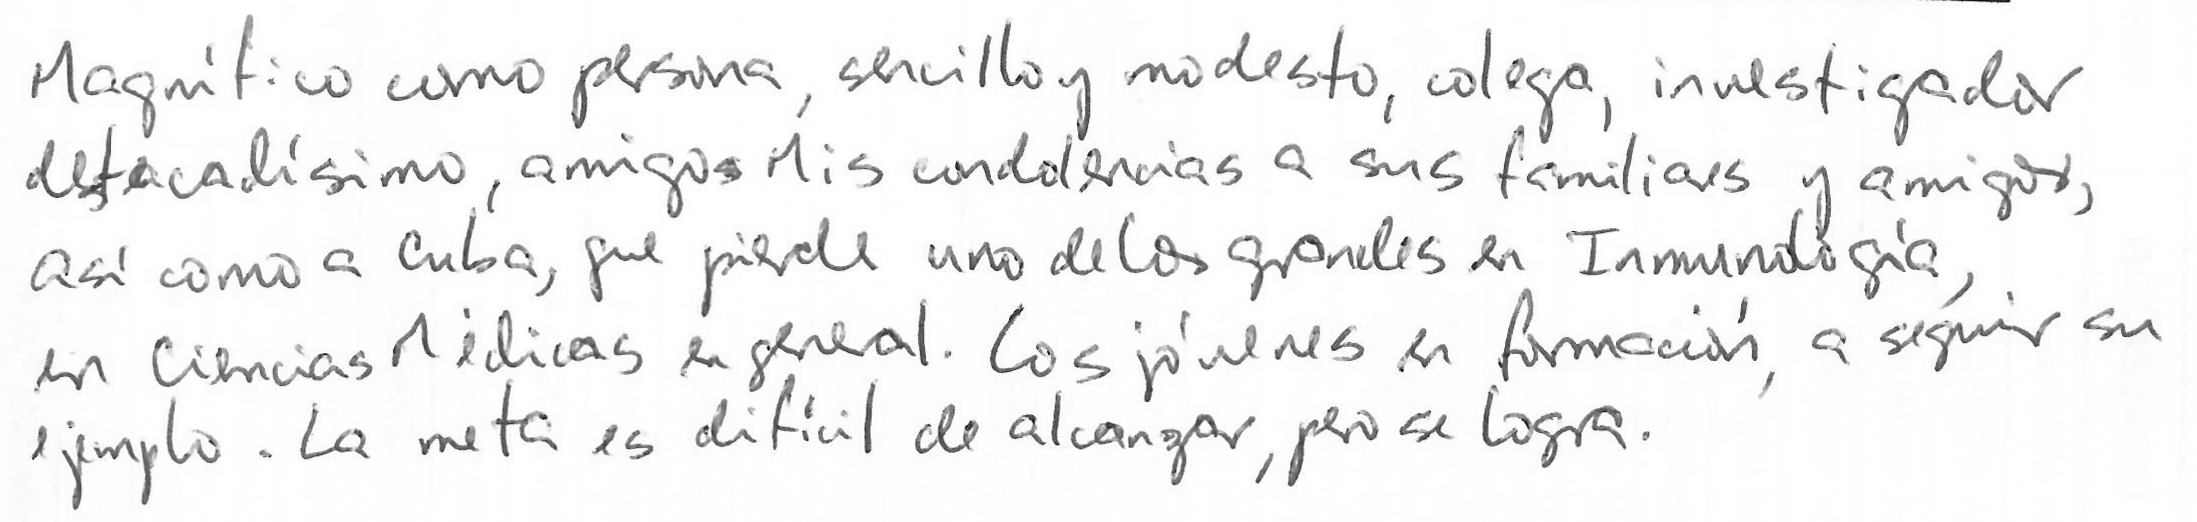 Magnífico como persona, sencillo y modesto, colega, investigador
destacadísimo, amigos Mis condolencias a sus familiares y amigos,
así como a Cuba, que pierde uno de los grandes en Inmunología,
en Ciencias Médicas en general. Los jóvenes en formación, a seguir su
ejemplo. La meta es difícil de alcanzar, pero se logra.